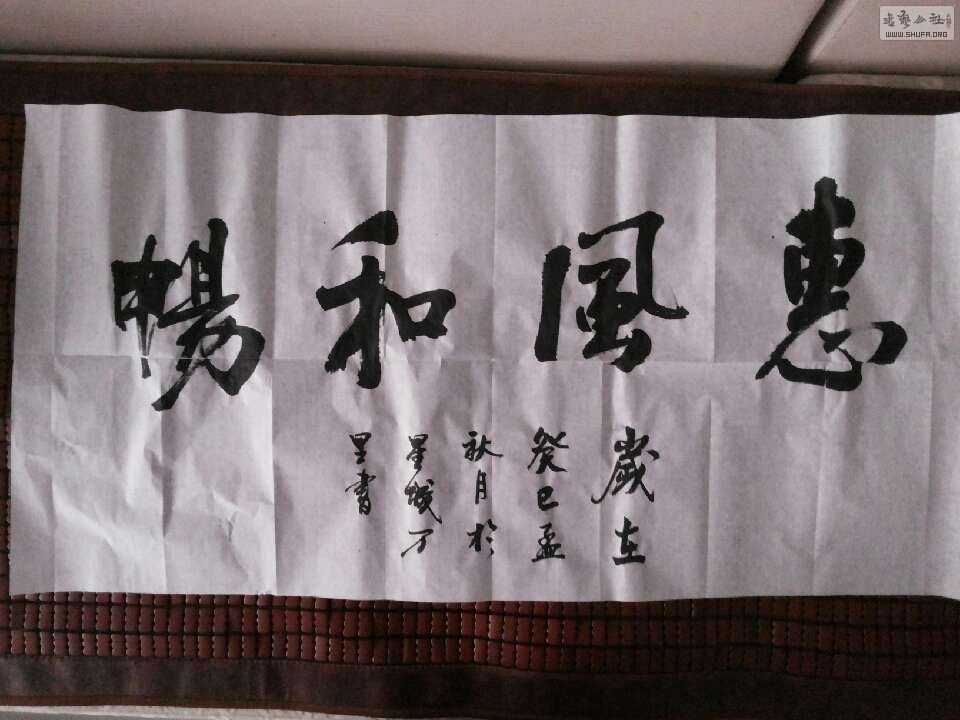 惠風和暢
歲在
癸巳孟
秋月於
星城万
里書
書藝公社
WWW.SHUFA.ORG